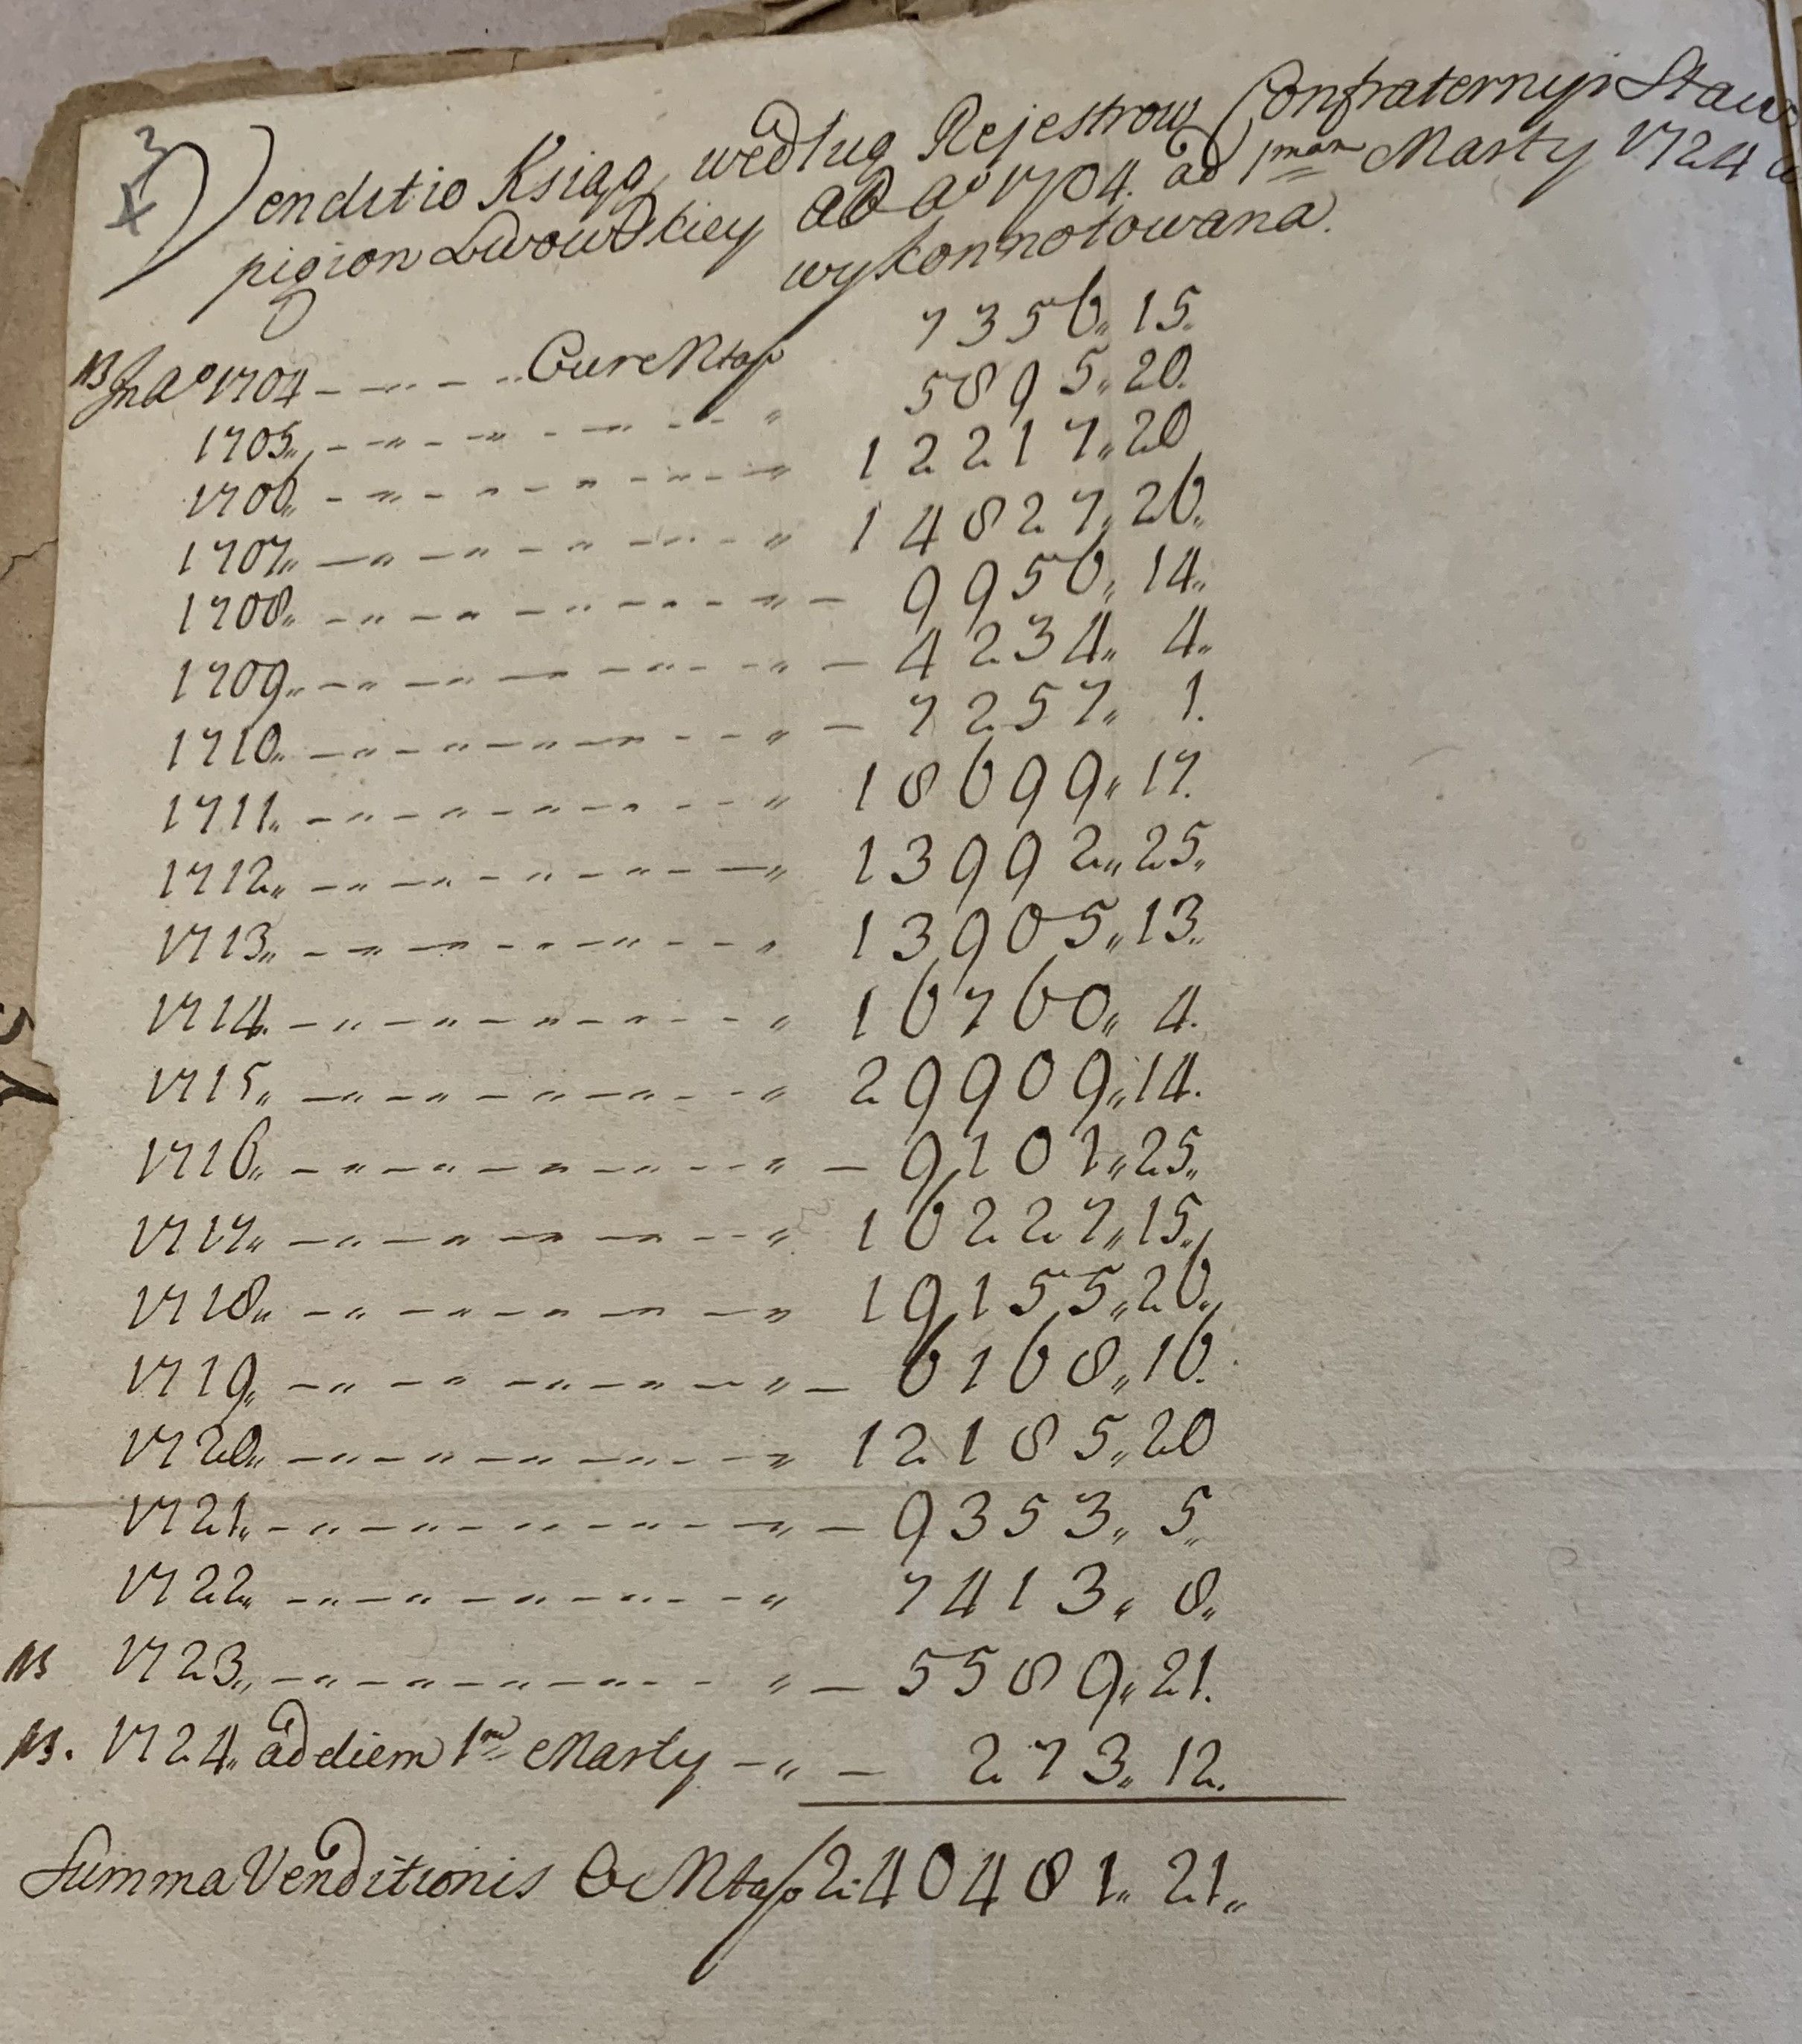 3
4
Venditio Ksiąg według Rejestrow Confraternyi Stauro
pigion Lwowskiey ab Aº 1704. ad 1man Marty 1724
wykonnotowana.
NB In Aº 1704 7356„ 15.
1705„ „ 5895„ 20.
1706„ „ 12217„ 20
1707„ „ 14827„ 26„
1708„ „ 9956„ 14„
1709„ „ 4234„ 4„
1710„ „ 7257„ 1.
1711„ „ 18699„ 17.
1712„ „ 13992„ 25„
1713„ „ 13905„ 13„
1714„ „ 16760„ 4.
1715„ „ 29909„ 14.
1716„ „ 9101„ 25„
1717„ „ 16227„ 15„
1718„ „ 19155„ 26„
1719„ „ 6168„ 16.
1720„ „ 12185„ 20
1721„ „ 9353„ 5„
1722„ „ 7413„ 8„
NB 1723„ „ 5589„ 21.
NB. 1724„ ad diem 1ma Marty „ 273„ 12.
Summa Venditionis 240481„ 21„